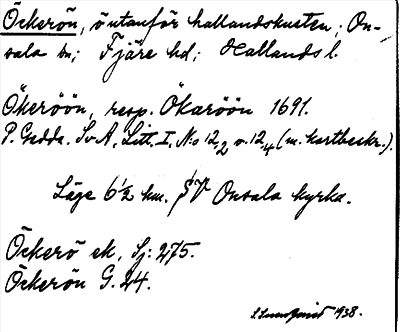 Öckerön, ö utanför hallandskusten; On-
sala sn; Fjäre hd; Hallands l.
Ökeröön, resp. Ökaröön 1691.
P. Gedda. Sv A, Litt. I, No 12,2 o. 12,4 (m. kartbeskr.).
Läge 6½ km. SV Onsala kyrka.
Öckerö ek, Sj: 275.
Öckerön G. 24.
1938.